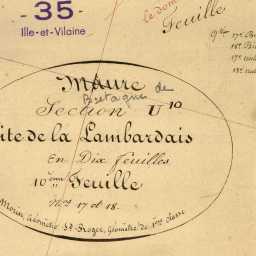 - 35 -
Ille-et-Vilaine
Feuille
Maure de
Bretagne
Section U 10
ite de la Lambardais
En Dix Feuilles
10ème Feuille
Nos 17 et 18.
Géomètre de 1ère classe